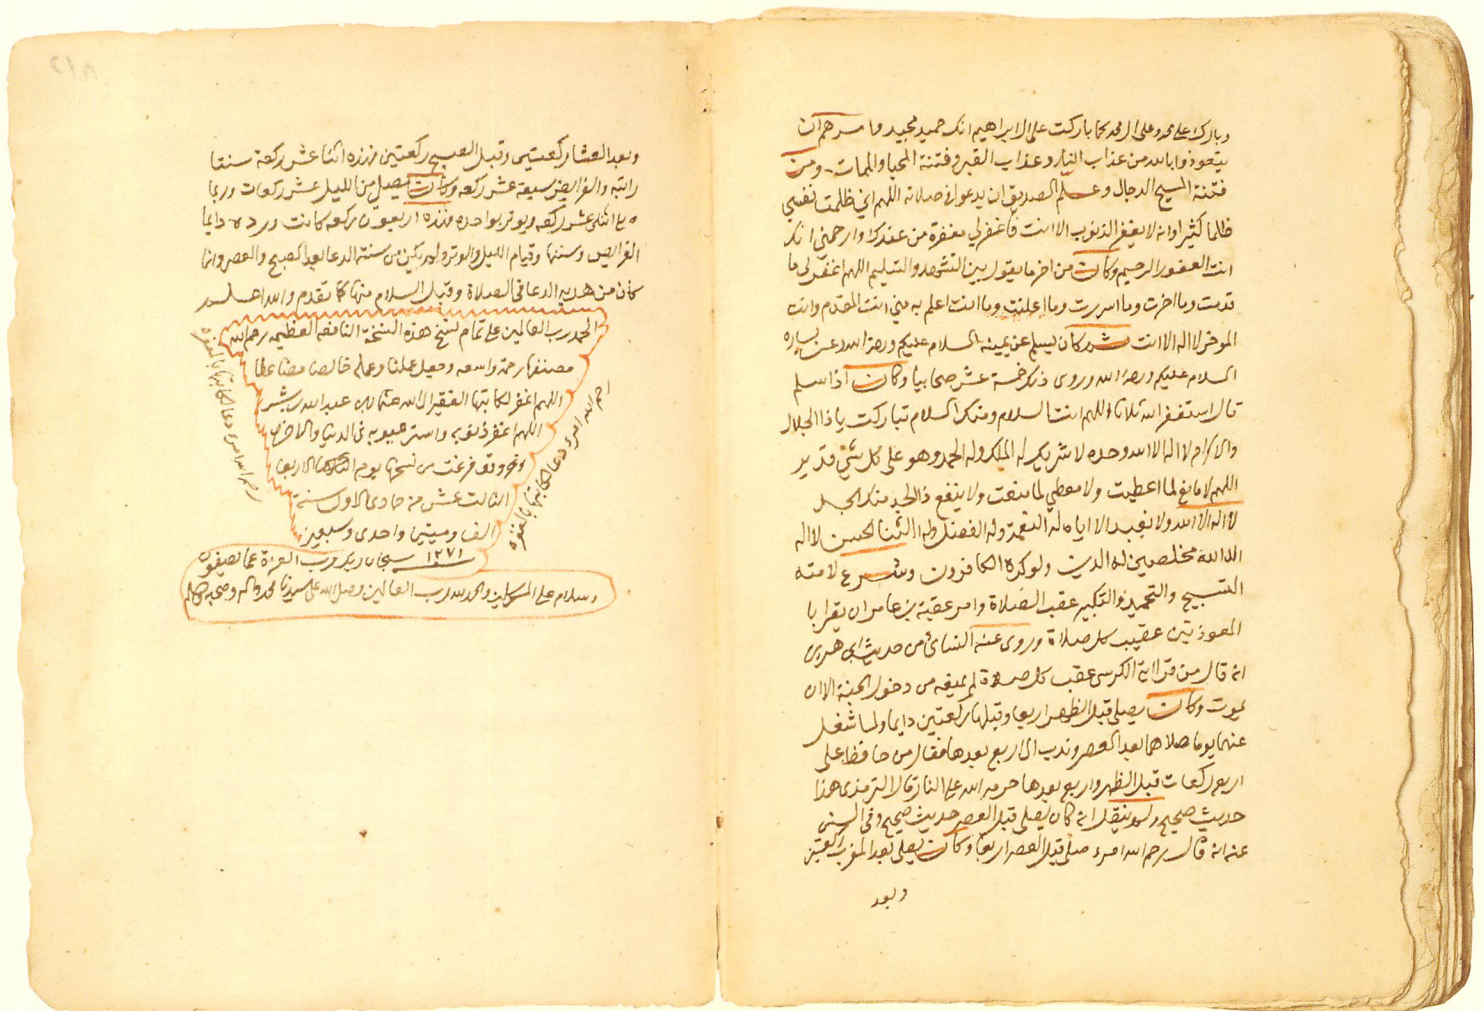 وبارك على محمد وعلى ال محمد كما باركت على ال ابراهيم انك حميد مجيد وامرهم ان
يتعوذوا بالله من عذاب النار وعذاب القبر وفتنة المحيا والممات ومن
فتنة المسيح الدجال وعلم الصديق ان يدعوا في صلاته اللهم اني ظلمت نفسي
ظلما كثيرا وانه لا يغفر الذنوب الا انت فاغفر لي مغفرة من عندك وارحمني انك
انت الغفور الرحيم وكان من اخر ما يقول بين التشهد والتسليم اللهم اغفر لي ما
قدمت وما اخرت وما اسررت وما اعلنت وما انت اعلم به مني انت المقدم وانت
الموخر لا اله الا انت ثم كان يسلم عن يمينه السلام عليكم ورحمة الله وعن يساره
السلام عليكم ورحمة الله وروى ذلك خمسة عشر صحابيا وكان اذا سلم
قال استغفر الله ثلاثا اللهم انت السلام ومنك السلام تباركت ياذا الجلال
والاكرام لا اله الا الله وحده لا شريك له له الملك وله الحمد وهو على كل شئ قدير
اللهم لا مانع لما اعطيت ولا معطي لما منعت ولا ينفع ذا الجد منك الجد
لا اله الا الله ولا نعبد الا اياه له النعمة وله الفضل وله الثنا الحسن لا اله
الا الله مخلصين له الدين ولو كره الكافرون وشرع لامته
التسبيح والتحميد والتكبير عقب الصلاة وامر عقبة بن عامر ان يقرا با
المعوذتين عقيب كل صلاة وروى عنه النسائ من حديث ابي هريره
انه قال من قرا اية الكرسي عقب كل صلاة لم يمنعه من دخول الجنة الا ان
يموت وكان يصلي قبل الظهر اربعا وقبلها ركعتين دايما ولما شغل
عنهما يوما صلاهما بعد العصر وندب الى اربع بعدها فقال من حافظ على
اربع ركعات قبل الظهر واربع بعدها حرمه الله على النار قال الترمذي هذا
حديث صحيح ولم ينقل انه كان يصلي قبل العصر حديث صحيح وفي السنن
عنه انه قال رحم الله امرء صلى قبل العصر اربعا وكان يصلي بعد المغرب ركعتين
وبعد
وبعد العشا ركعتين وقبل الصبح ركعتين فهذه اثنا عشر ركعة سننا
راتبه والفرايض سبعة عشر ركعه وكان يصلي من الليل عشر ركعات وربما
اثنى عشر ركعه ويوتر بواحده فهذه اربعون ركعه كانت ورده دايما
الفرايض وسننها وقيام الليل والوتر ولم يكن من سنته الدعا بعد الصبح والعصر وانما
كان من هديه الدعا في الصلاة وقبل السلام منها كما تقدم والله اعلم
الحمد رب العالمين على تمام نسخ هذه النسخة النافعه العظيمه رحم الله
مصنفها رحمة واسعه وجعل علمنا وعمله خالصا
اللهم اغفر لكاتبها الفقير الى الله عثمان بن عبدالله بن بشر
اللهم اغفر ذنوبه واستر عيوبه في الدنيا والاخره
وقد فرغت من نسخها يوم الاربعا
الثالث عشر من جمادى الاول سنة
الف وميتين واحدى وسبعين
سنة ١٢٧١ سبحان ربك رب العزة عما يصفون
وسلام على المرسلين والحمد لله رب العالمين وصلى الله على سيدنا محمد واله وصحبه
رحم الله امرء دعا لكاتبها بالمغفره
رحم الله امرء دعا لكاتبها بالمغفره